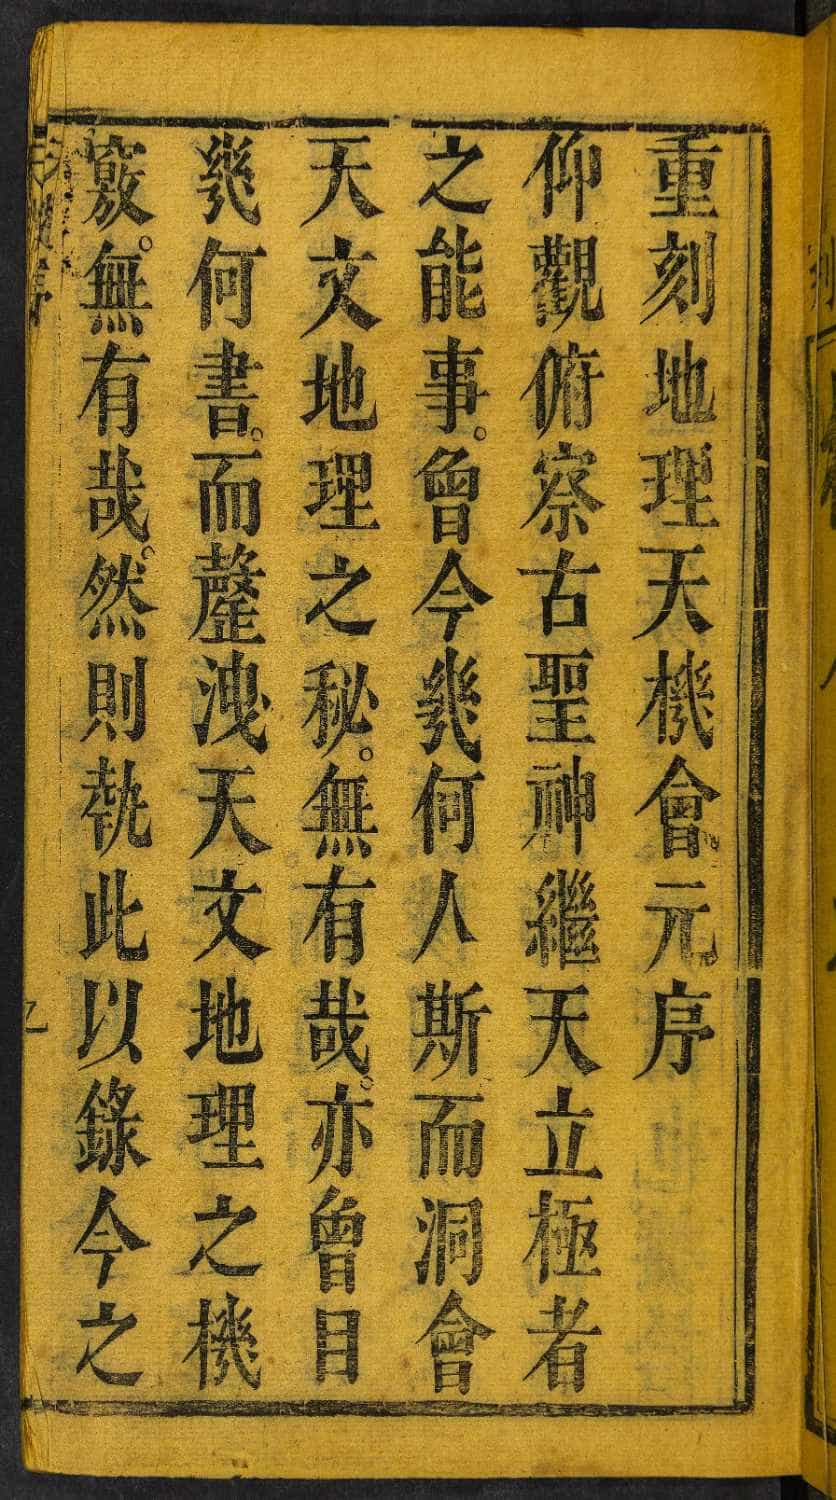 重刻地理天機會元序
仰觀俯察古聖神繼天立極者
之能事。曾今幾何人斯而洞會
天文地理之秘。無有哉。亦曾目
幾何書。而釐洩天文地理之機
竅。無有哉。然則執此以錄今之